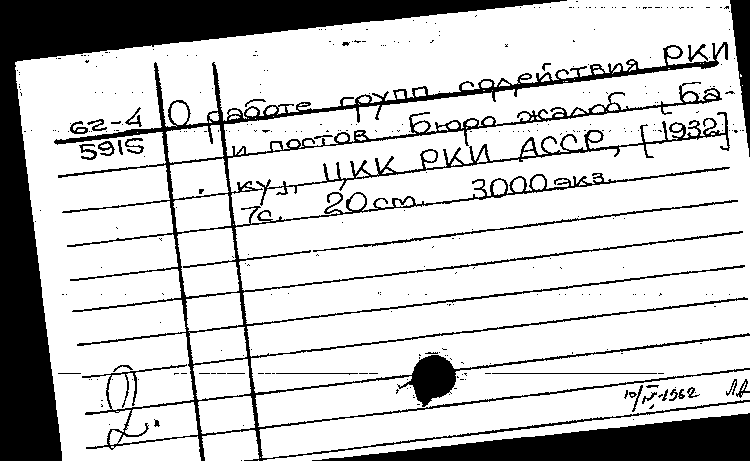 62-4
5915
О работе групп содействия РКИ
и постов Бюро жалоб. [Ба-
ку], ЦКК РКИ АССР, [1932].
7с. 20 cm. 3000 экз.
2.
10/IV-1962